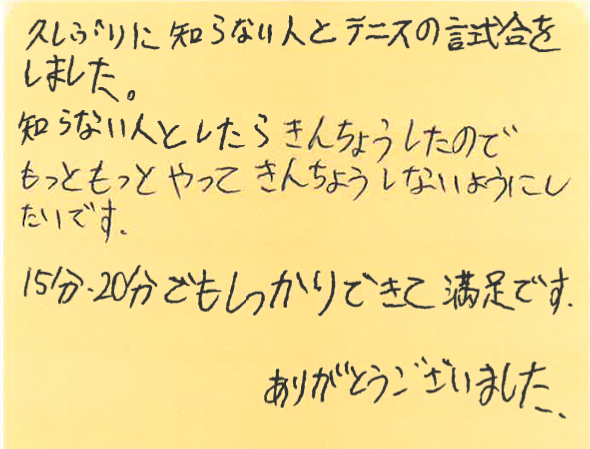 久しぶりに知らない人とテニスの試合を
しました。
知らない人としたらきんちょうしたので
もっともっとやってきんちょうしないようにし
たいです.
15分-20分でもしっかりできて満足です.
ありがとうございました.